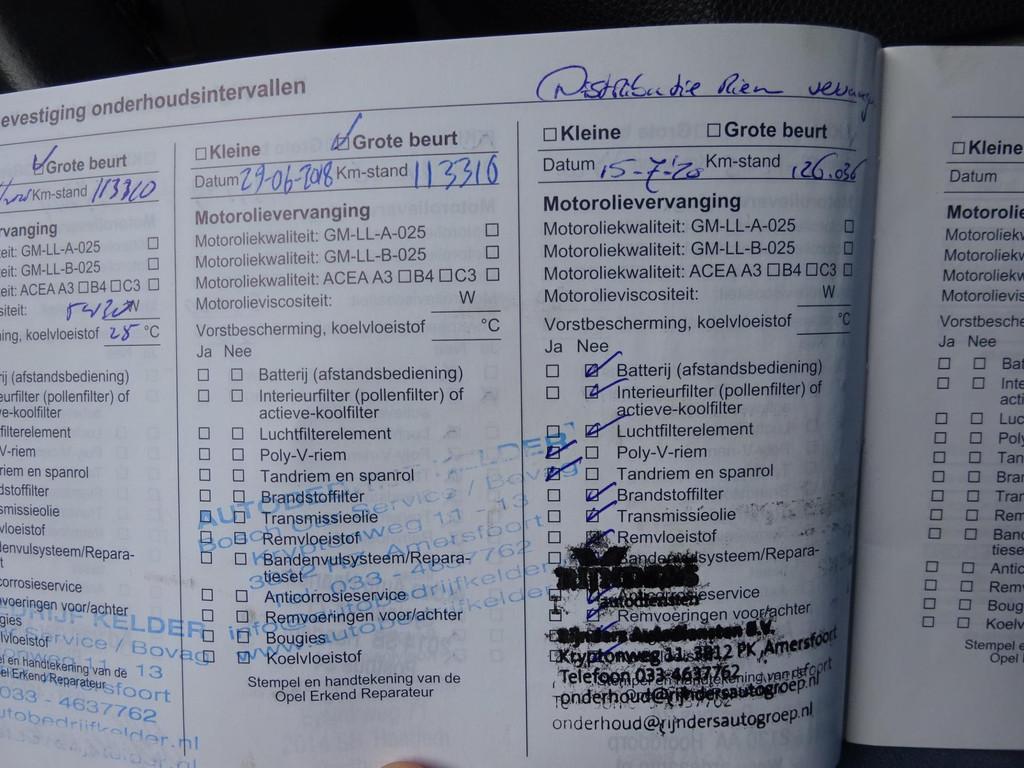 evestiging onderhoudsintervallen
Grote beurt
Km-stand 113310
rvanging
teit: GM-LL-A-025
teit: GM-LL-B-025
teit: ACEA A3 B4 C3
siteit: W
ning, koelvloeistof 25 °C
rij (afstandsbediening)
eurfilter (pollenfilter) of
eve-koolfilter
filterelement
V-riem
riem en spanrol
dstoffilter
smissieolie
vloeistof
denvulsysteem/Repara-
t
corrosieservice
voeringen voor/achter
gies
lvloeistof
el en handtekening van de
el Erkend Reparateur
RIJF KELDER
Service / Bovag
11 - 13
Amersfoort
033 - 4637762
utobedrijfkelder.nl
Kleine Grote beurt
Datum 29-06-2018 Km-stand 113310
Motorolievervanging
Motoroliekwaliteit: GM-LL-A-025
Motoroliekwaliteit: GM-LL-B-025
Motoroliekwaliteit: ACEA A3 B4 C3
Motorolieviscositeit: W
Vorstbescherming, koelvloeistof °C
Ja Nee
Batterij (afstandsbediening)
Interieurfilter (pollenfilter) of
actieve-koolfilter
Luchtfilterelement
Poly-V-riem
Tandriem en spanrol
Brandstoffilter
Transmissieolie
Remvloeistof
Bandenvulsysteem/Repara-
tieset
Anticorrosieservice
Remvoeringen voor/achter
Bougies
Koelvloeistof
Stempel en handtekening van de
Opel Erkend Reparateur
KELDER
Service / Bovag
Kryptonweg 11 - 13
Amersfoort
033 - 4637762
info@autobedrijfkelder
www.autobedrijfkelder
Distributie Riem vervangen
Kleine Grote beurt
Datum 15-7-'20 Km-stand 126.036
Motorolievervanging
Motoroliekwaliteit: GM-LL-A-025
Motoroliekwaliteit: GM-LL-B-025
Motoroliekwaliteit: ACEA A3 B4 C3
Motorolieviscositeit: W
Vorstbescherming, koelvloeistof °C
Ja Nee
Batterij (afstandsbediening)
Interieurfilter (pollenfilter) of
actieve-koolfilter
Luchtfilterelement
Poly-V-riem
Tandriem en spanrol
Brandstoffilter
Transmissieolie
Remvloeistof
Bandenvulsysteem/Repara-
Anticorrosieservice
Remvoeringen voor/achter
RIJNDERS
autodiensten
Rijnders Autodiensten B.V.
Kryptonweg 11, 3812 PK Amersfoort
Telefoon 033-4637762
onderhoud@rijndersautogroep.nl
onderhoud@rijndersautogroep.nl
Kleine
Datum
Motorolie
Motoroliekw
Motoroliekw
Motoroliekw
Motorolievis
Vorstbesche
Ja Nee
Bat
Inte
acti
Luc
Poly
Tan
Bra
Tra
Rem
Ban
tiese
Antic
Rem
Boug
Koelv
Stempel e
Opel